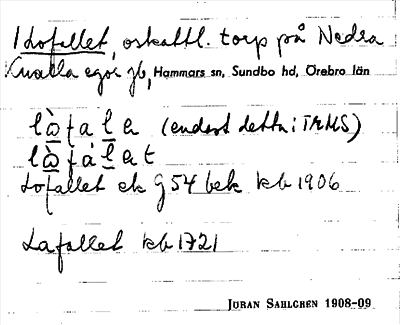 1 Lofallet, oskattl. torp på Nedra
Kvalla egor jb, Hammars sn, Sundbo hd, Örebro län
lòfala (endast detta i TRMS)
lòfálat
Lofallet ek G54 bek kb 1906
Lafallet kb 1721
JÖRAN SAHLGREN 1908-09